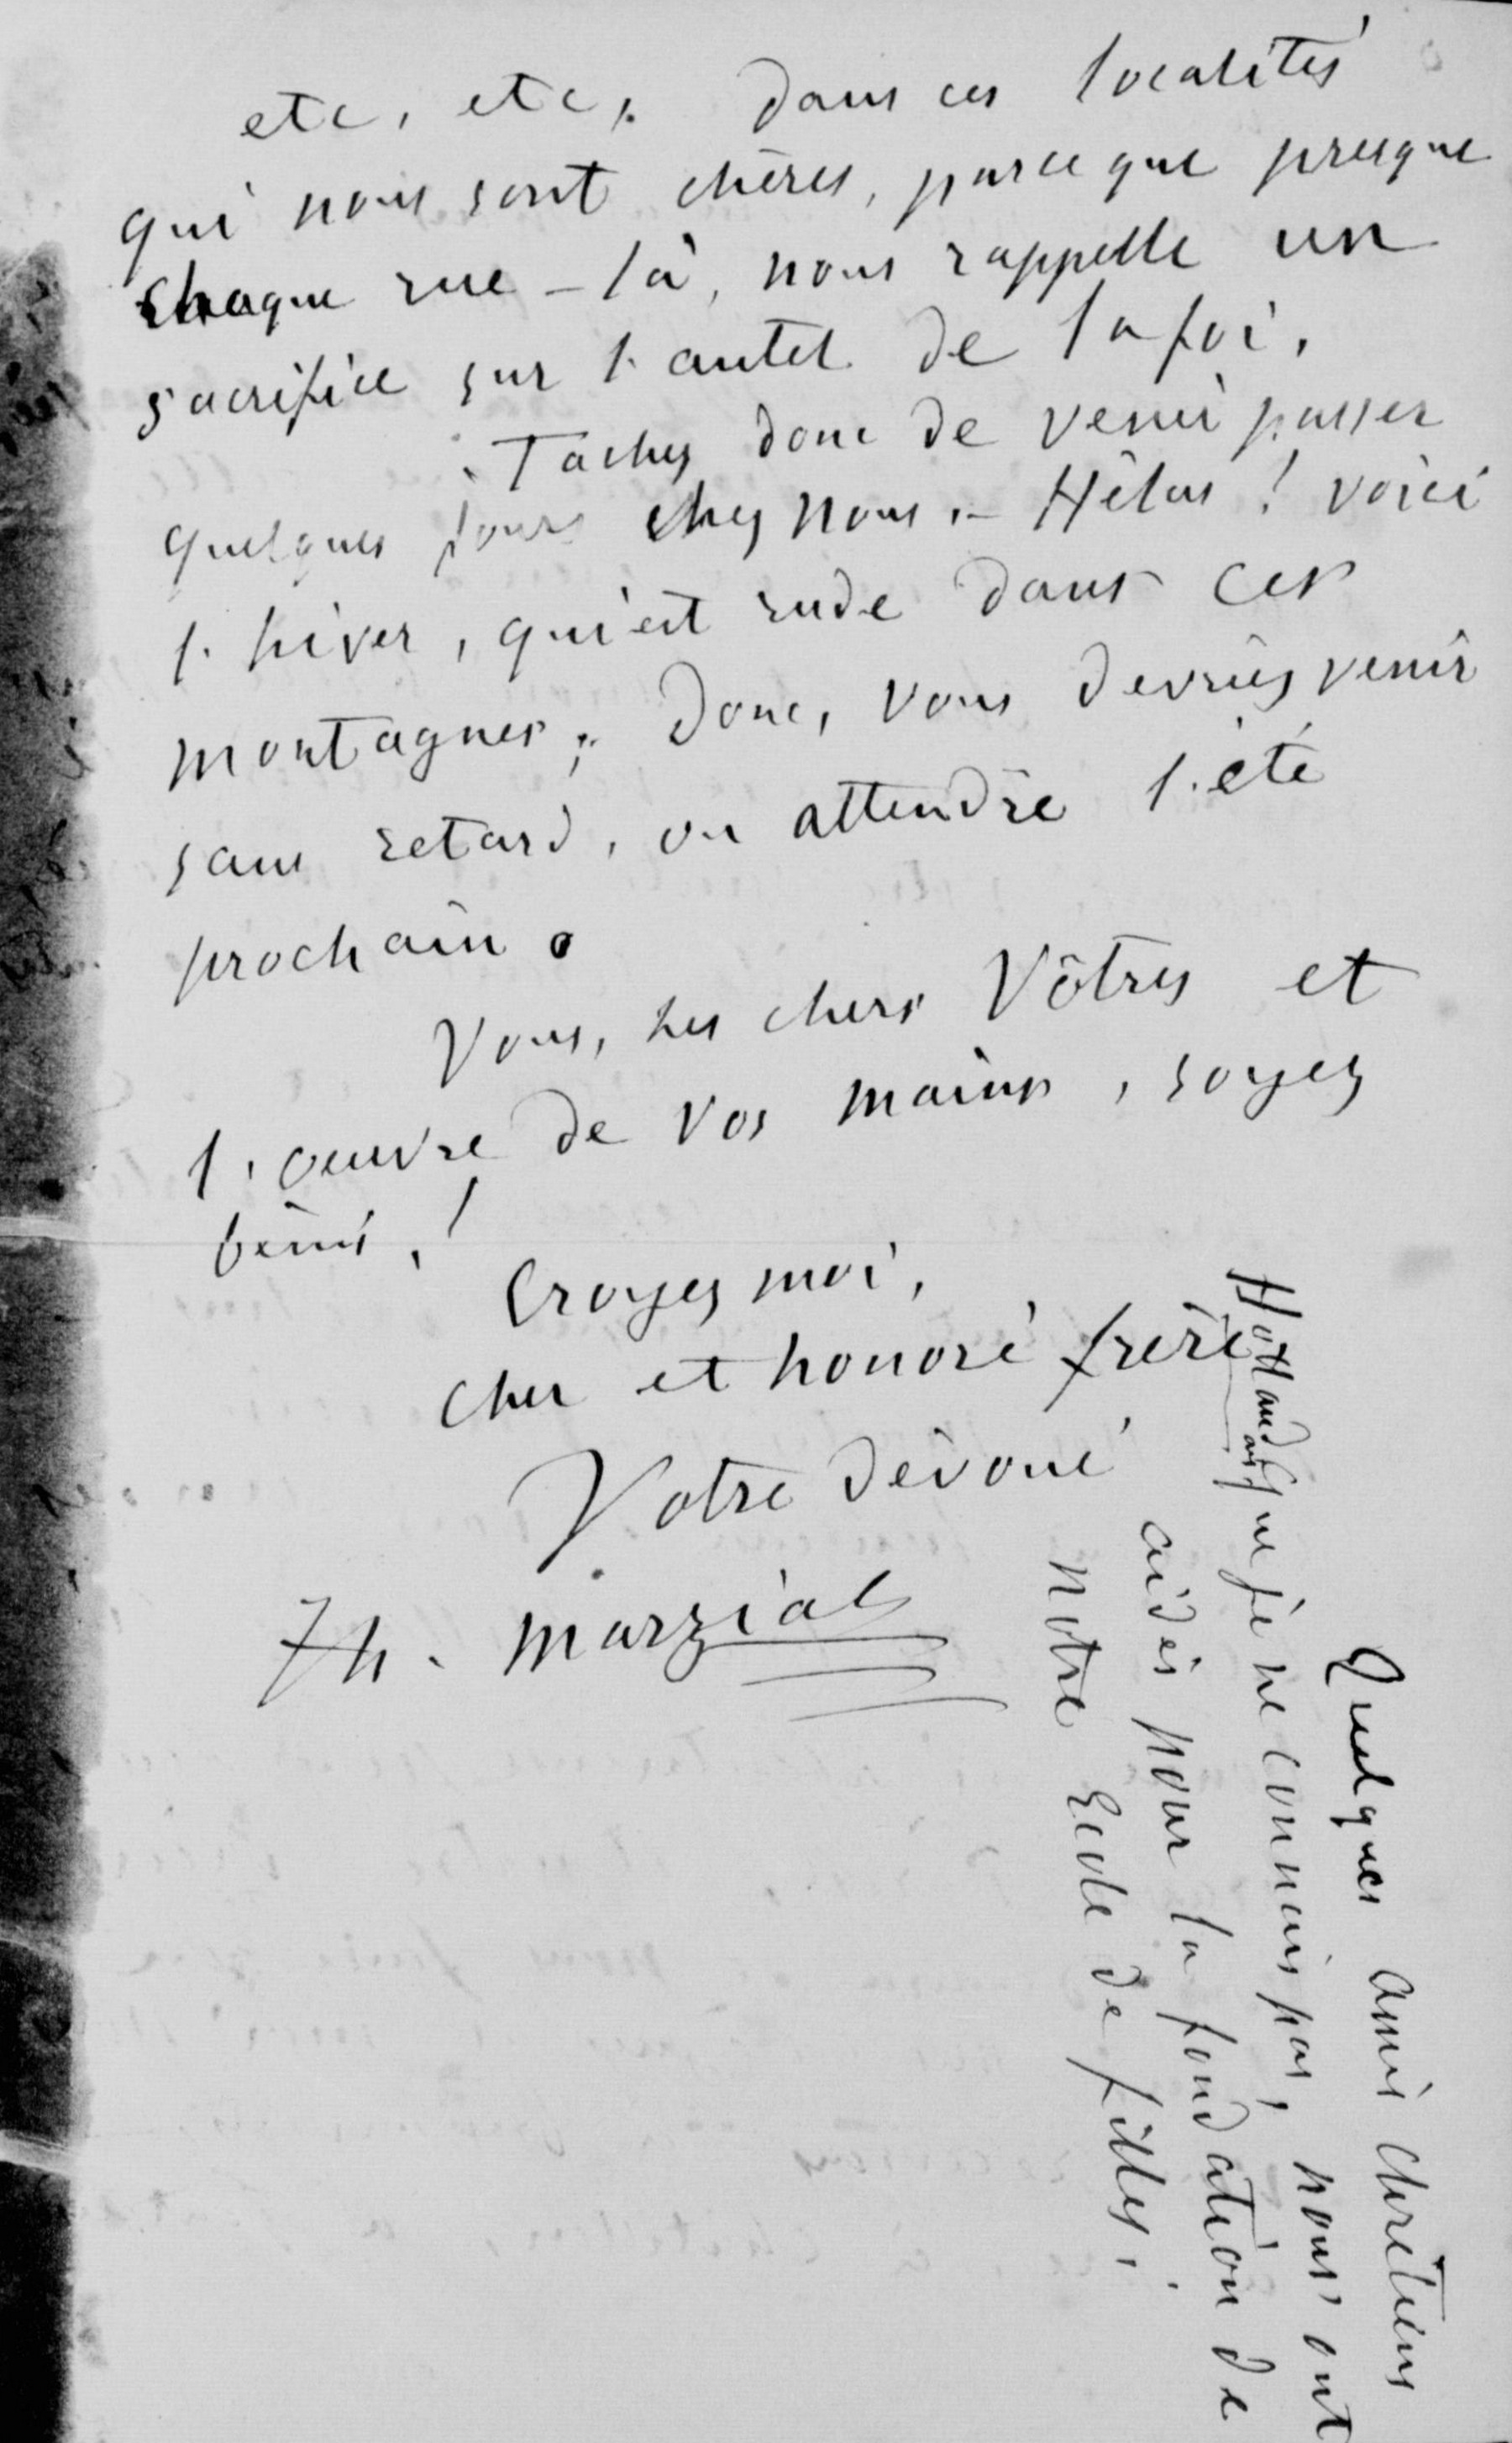 etc, etc, dans ces localités
qui nous sont chères, parceque presque
chaque rue - là, nous rappelle un
sacrifice sur l'autel de la foi.
Tachez donc de venir passer
quelques jours chez nous. - Hélas ! voici
l'hiver, qui est rude dans ces
montagnes; Donc, vous devriez venir
sans retard, ou attendre l'été
prochain.
Vous, les chers Vôtres et
l'œuvre de vos mains, soyez
bénis !
Croyez moi,
cher et honoré frère
Votre dévoué
Th. Marzials
Quelques amis chrétiens
Hollandais que je ne connais pas, nous ont
aidés pour la fondation de
notre Ecole de filles.